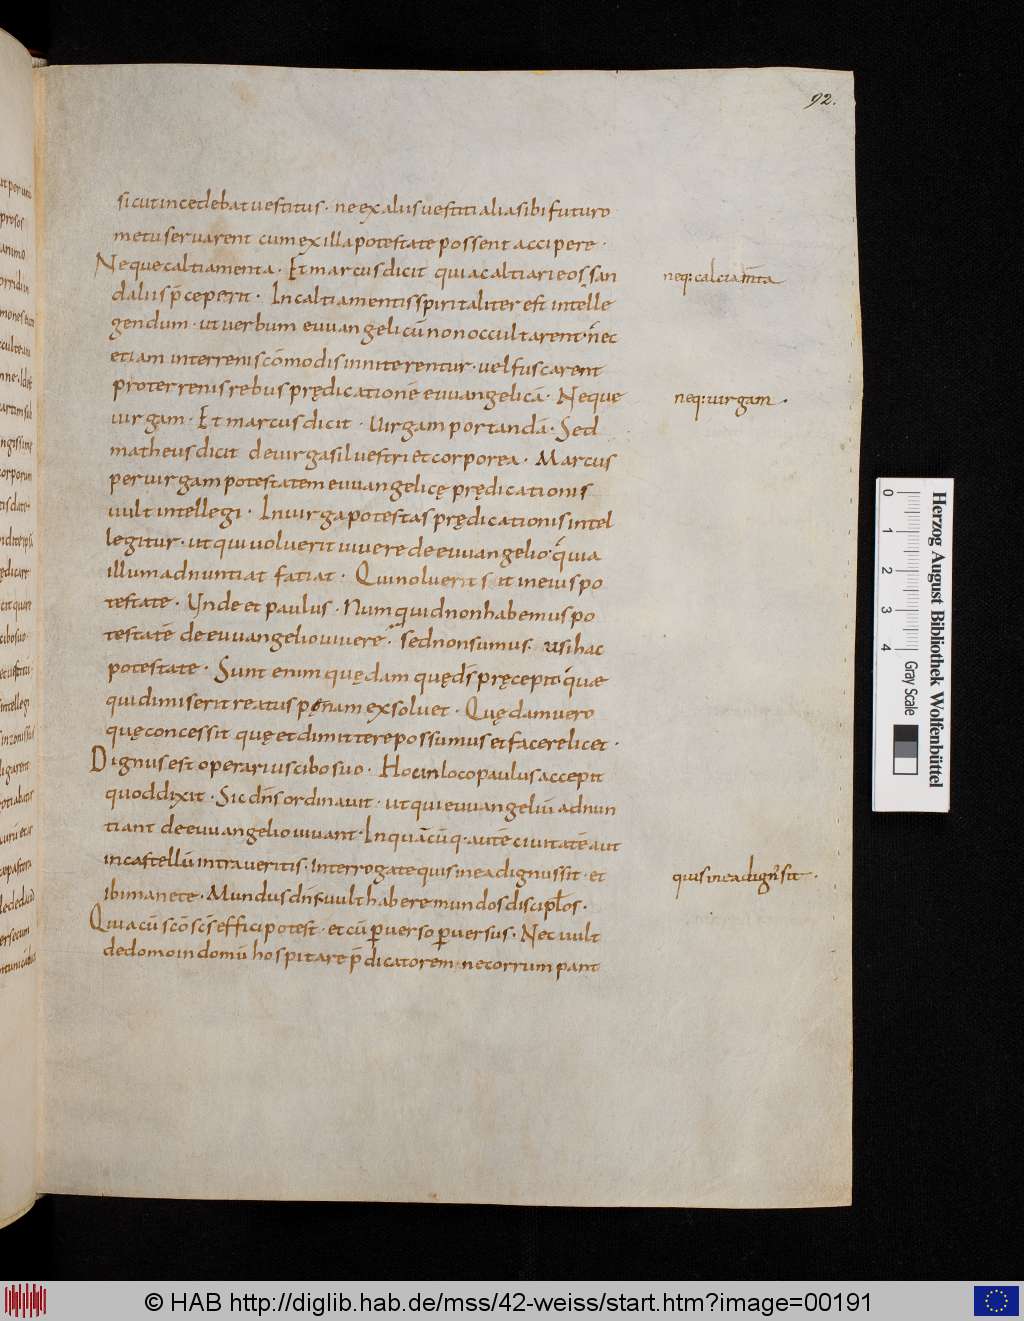 92.
sicut incedebat uestitus · ne ex alus uestiti alia sibi futuro
metu seruarent cum ex illa potestate possent accipere ·
Neque caltiamenta · Et marcus dicit qui ac altiari eos san
neq: calciam̄ta
dalus p̄ceperit · In caltiamentis spiritaliter est intelle
gendum · ut uerbum euuangelicū non occultarent · nec
etiam interreniscōmodis inniterentur · uel fuscarent
pro terrenis rebus prędicationē euuangelicā · Neque
neq: uirgam ·
uirgam · Et marcus dicit · Uirgam portandā · Sed
matheus dicit de uirga siluestri et corporea · Marcus
per uirgam potestatem euuangelicę prędicationis
uult intellegi · In uirga potestas prędicationis intel
legitur · ut qui uoluerit uiuere de euuangelio · quia
illum adnuntiat fatiat · Qui noluerit sit in eius po
testate · Unde et paulus · Numquid non habemus po
testatē de euuangelio uiuere · sed non sumus usi hac
potestate · Sunt enim quędam quę dn̄s pręcepit quae
qui dimiserit reatus pęnam exsoluet · Quędam uero
quę concessit quę et dimittere possumus et facere licet ·
Dignus est operarius cibo suo · Hoc in loco paulus accepit
quod dixit · Sic dn̄s ordinauit · ut qui euuangeliū adnun
tiant de euuangelio uiuant · In quācūq · autē ciuitatē aut
in castellū intraueritis · Interrogate quis in ea dignus sit · et
quis in ea dign' sit ·
ibi manete · Mundus dn̄s uult habere mundos discipłos ·
Quia cū scō scs̄ effici potest · et cū puerso puersus · Nec uult
de domo in domū hospitare p̄dicatorem · ne corrumpant
Herzog August Bibliothek Wolfenbüttel
0 1 2 3 4
Gray Scale
© HAB http://diglib.hab.de/mss/42-weiss/start.htm?image=00191